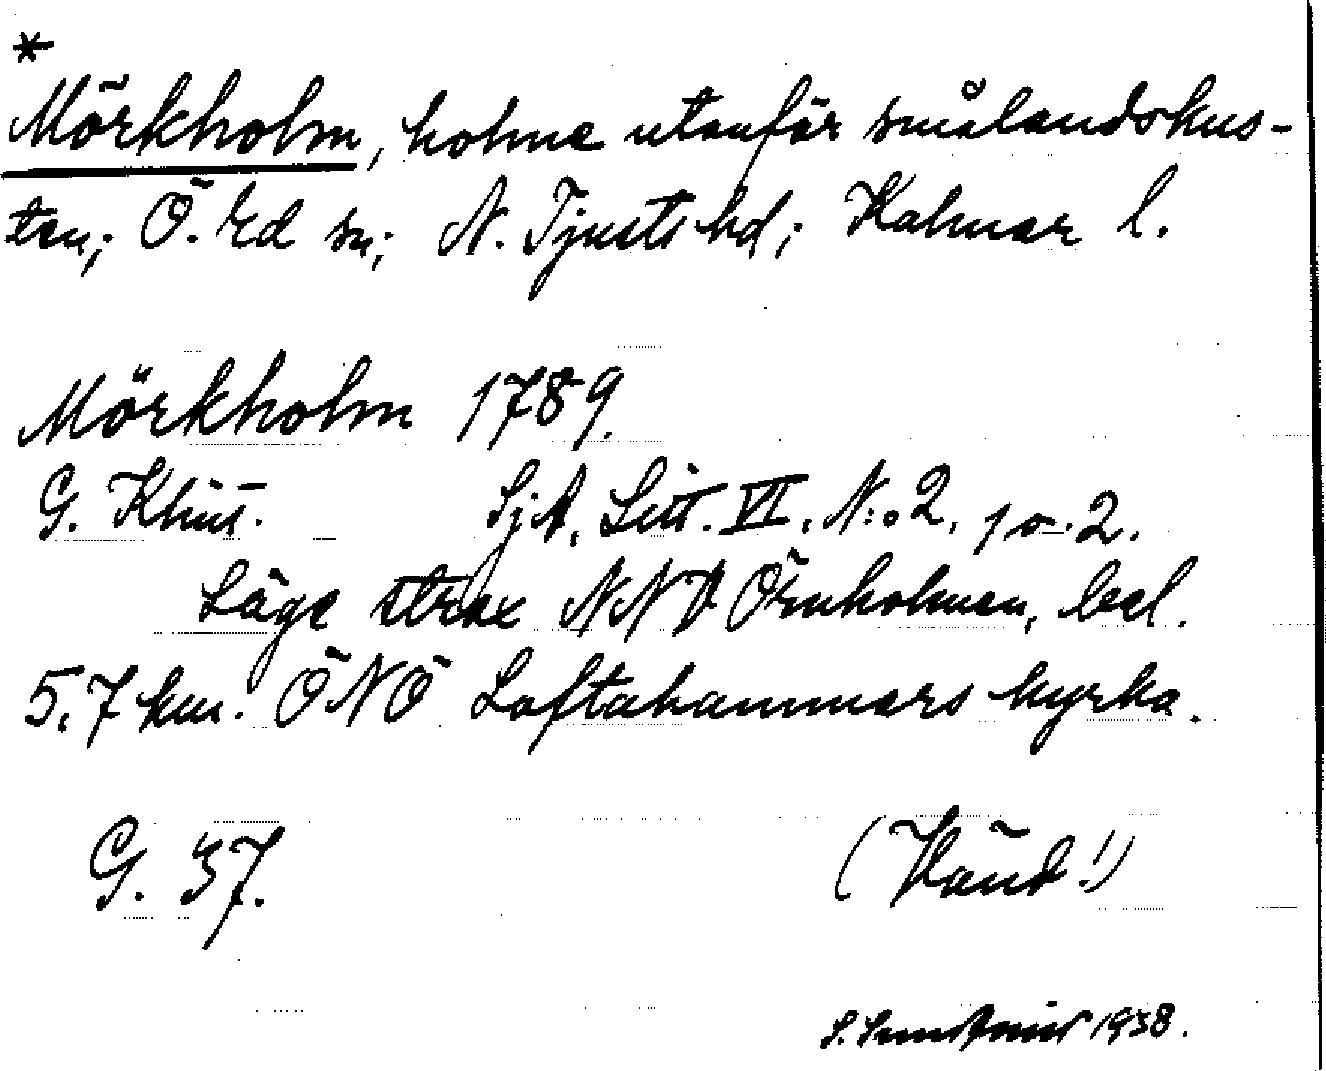 *
Mörkholm, holme utanför smålandskus-
ten; Ö. Ed sn; N. Tjusts hd; Kalmar l.
Mörkholm 1789.
G. Klint. SjA, Litt. VI, N:o 2, 1 o. 2.
Läge strax NNV Örnholmen, bel.
5,7 km. ÖNÖ Loftahammars kyrka.
G. 37.
(Känd!)
S. 1938.